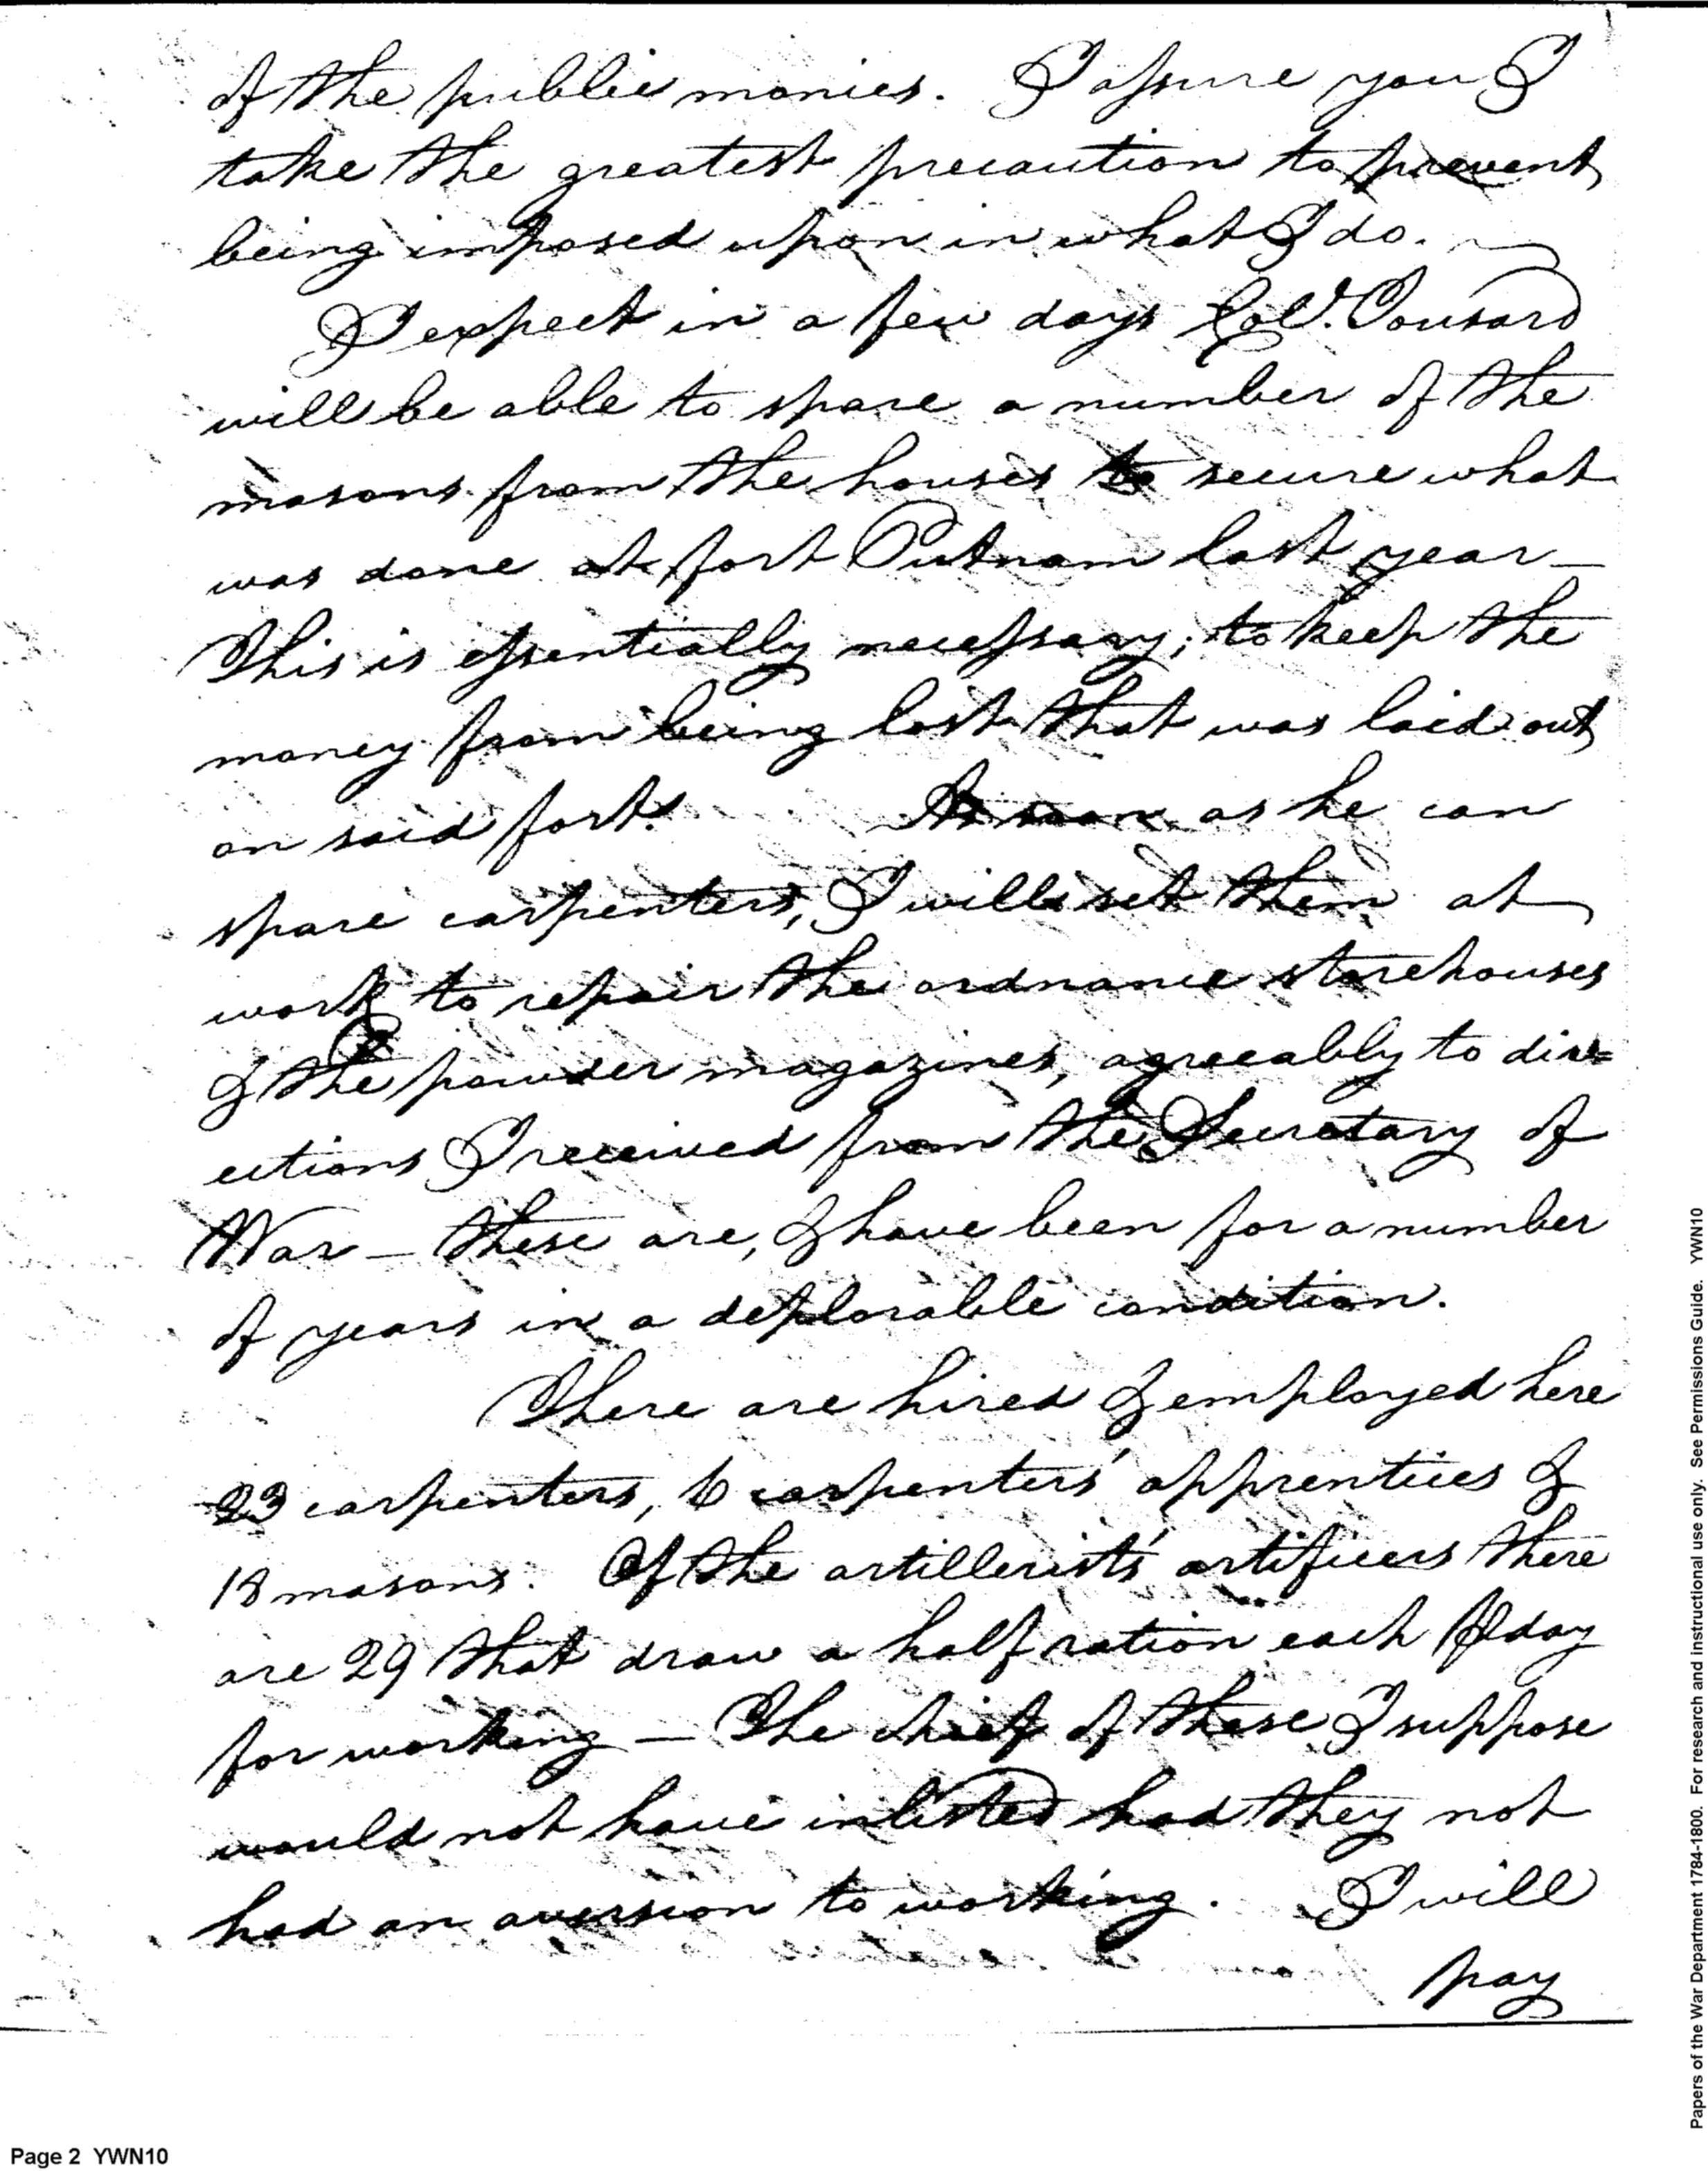 of the public monies. I assure you I
take the greatest precaution to prevent
being imposed upon in what I do.
I expect in a few days Col. Tousard
will be able to spare a number of the
masons from the houses to secure what
was done at fort Putnam last year—
This is essentially necessary; to keep the
money from being lost that was laid out
on said fort. As soon as he can
spare carpenters, I will set them at
work to repair the ordnance storehouses
& the powder magazines, agreeably to dir=
ections I received from the Secretary of
War — these are, & have been for a number
of years in a deplorable condition.
There are hired & employed here
23 carpenters, 6 carpenters' apprentices &
18 masons. Of the artillerists' artificers there
are 29 that draw a half ration each ℔ day
for working — The chief of these I suppose
would not have inlisted had they not
had an aversion to working. I will
pay
Page 2 YWN10
Papers of the War Department 1784-1800. For research and instructional use only. See Permissions Guide. YWN10